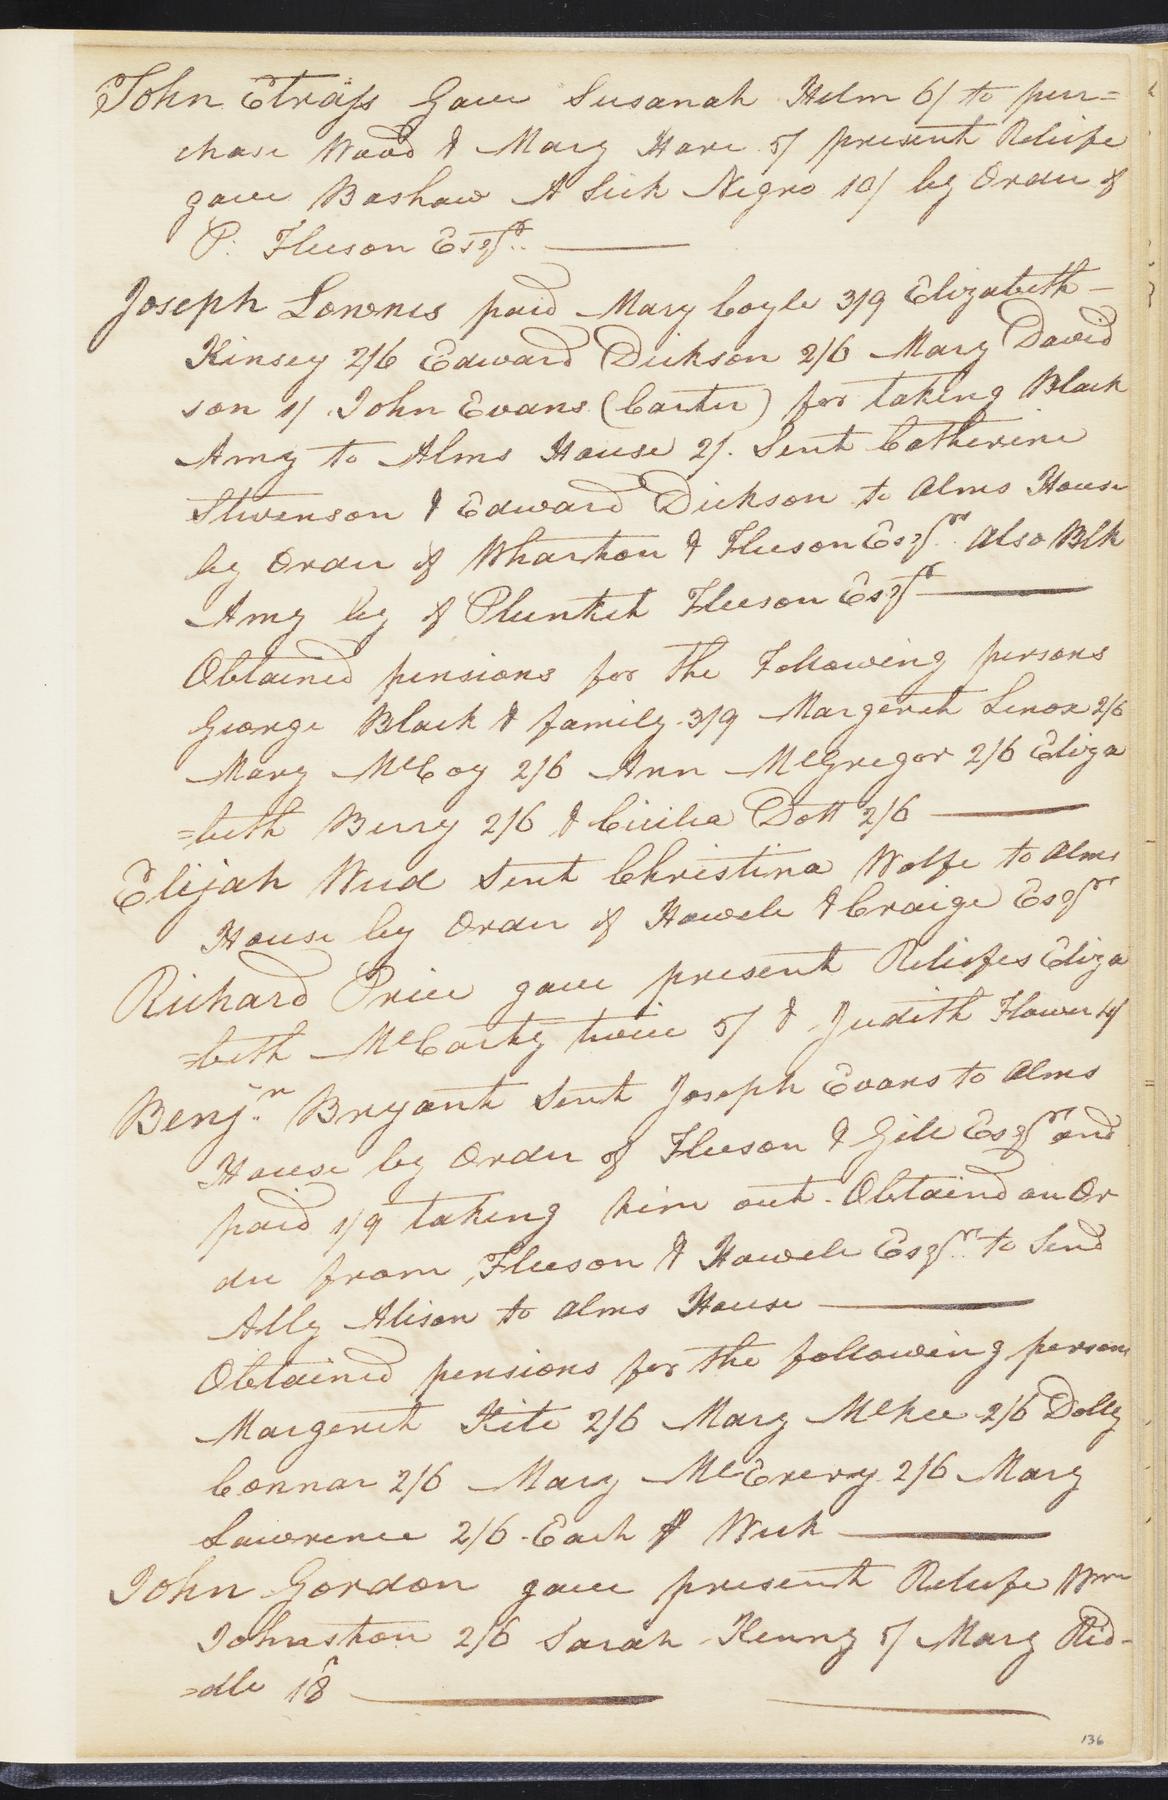 John Etrass Gave Susanah Helm 6/ to pur=
chase Wood & Mary Hare 5/ present Reliefe
gave Bashaw A Sick Negro 10/ by Order of
P. Fleeson Esqr..
Joseph Lownes paid Mary Coyle 3/9 Elizabeth
Kinsey 2/6 Edward Dickson 2/6 Mary David
son 1/ John Evans (Carter) for taking Black
Amy to Alms House 2/. Sent Catherine
Stevenson & Edward Dickson to Alms House
by Order of Wharton & Fleeson Esqrs. also Blk
Amy by of Plunket Fleeson Esqr
Obtained pensions for the Following persons
George Black & family 3/9 Margeret Lenox 2/6
Mary McCoy 2/6 Ann McGregor 2/6 Eliza
=beth Berry 2/6 & Cicilia Dott 2/6
Elijah Weed Sent Christina Wolfe to Alms
House by Order of Howell & Craige Esqrs
Richard Price gave present Reliefes Eliza
=beth McCarty twice 5/ & Judith Flower 4/
Benjn. Bryant Sent Joseph Evans to Alms
House by Order of Fleeson & Gill Esqrs and
paid 1/9 taking him out. Obtaind an Or
der from Fleeson & Howell Esqrs. to Send
Ally Alison to Alms House
Obtained pensions for the following persons
Margeret Kite 2/6 Mary McKee 2/6 Dolly
Connar 2/6 Mary McCrery 2/6 Mary
Lawrence 2/6 Each ⅌ Week
John Gordon gave present Reliefe Wm
Johnston 2/6 Sarah Kenny 5/ Mary Rid-
=dle 18
136